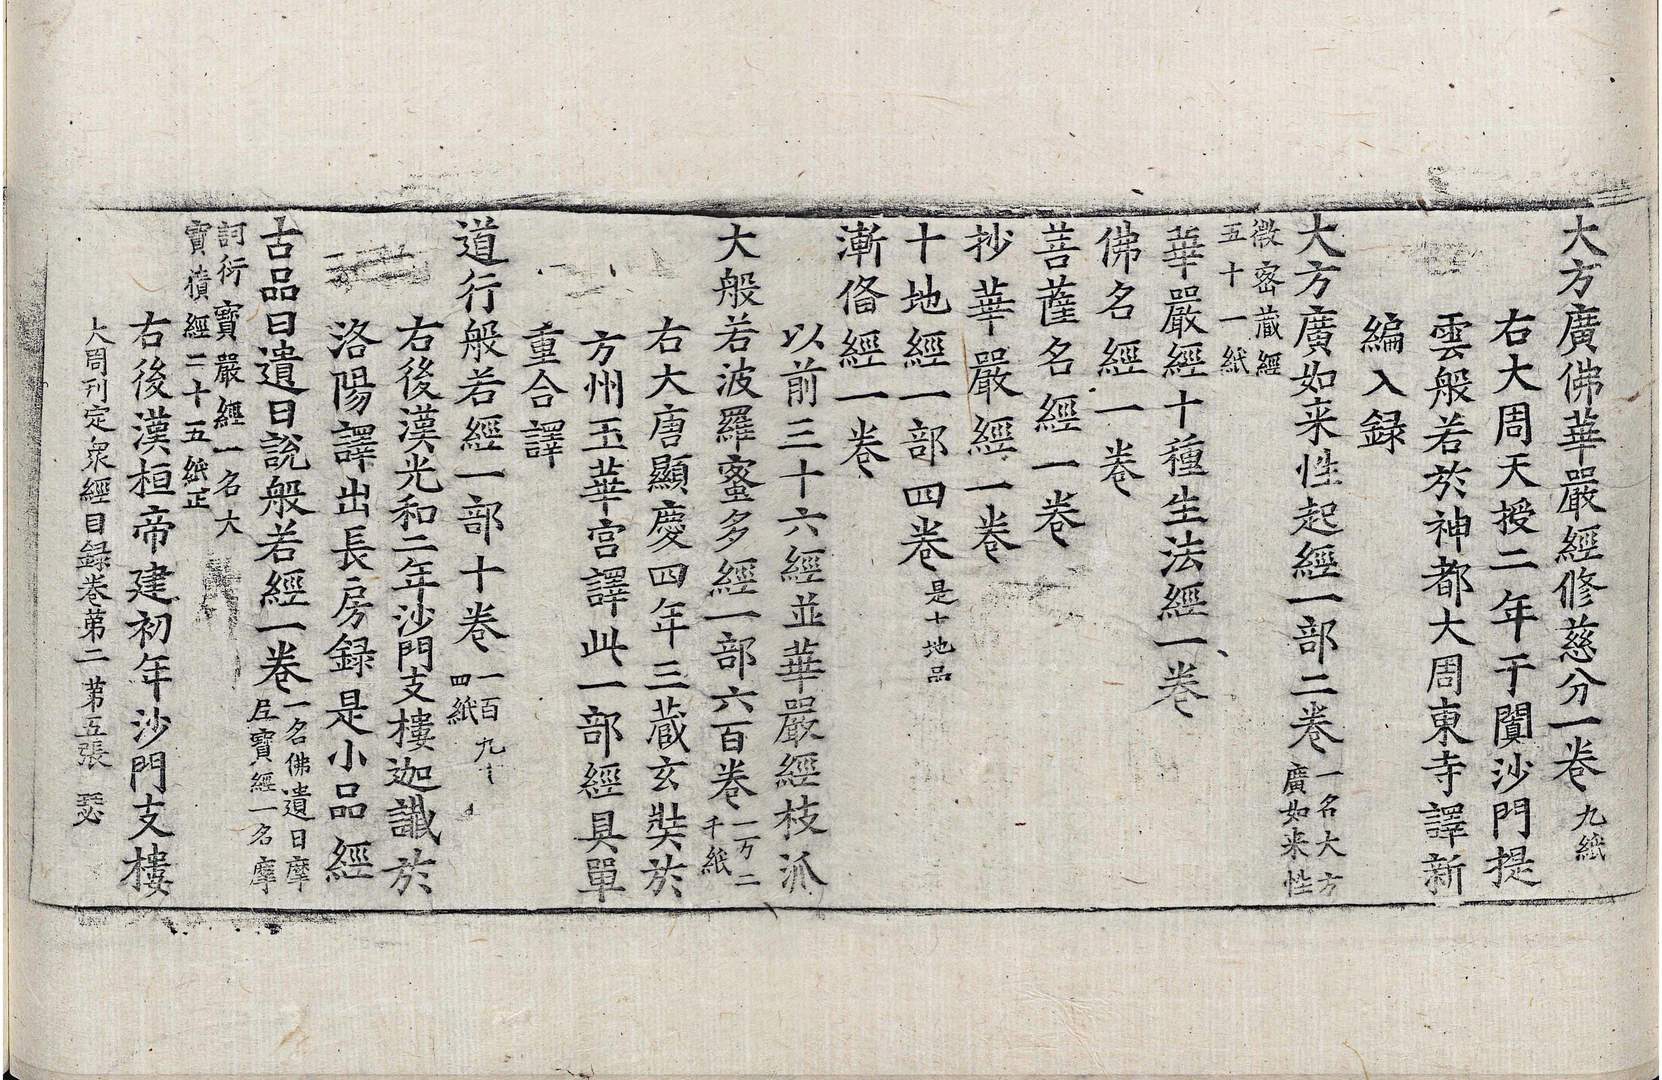 大方廣佛華嚴經修慈分一卷 九紙
右大周天授二年于闐沙門提
雲般若於神都大周東寺譯新
編入録
大方廣如来性起經一部二卷 一名大方
廣如来性
微密蔵經
五十一紙
華嚴經十種生法經一卷
佛名經一卷
菩薩名經一卷
抄華嚴經一卷
十地經一部四卷 是十地品
漸俻經一卷
以前三十六經並華嚴經枝泒
大般若波羅蜜多經一部六百卷 一万二
千紙
右大唐顯慶四年三蔵玄奘於
方州玉華宫譯此一部經具單
重合譯
道行般若經一部十卷 一百九十
四紙
右後漢光和二年沙門支樓迦讖於
洛陽譯出長房録是小品經
古品曰遺日說般若經一卷 一名佛遺日摩
尼寶經一名摩
訶衍寶嚴經一名大
寶積經二十五紙
右後漢桓帝建初年沙門支樓
大周刊定衆經目録卷苐二 苐五張 瑟